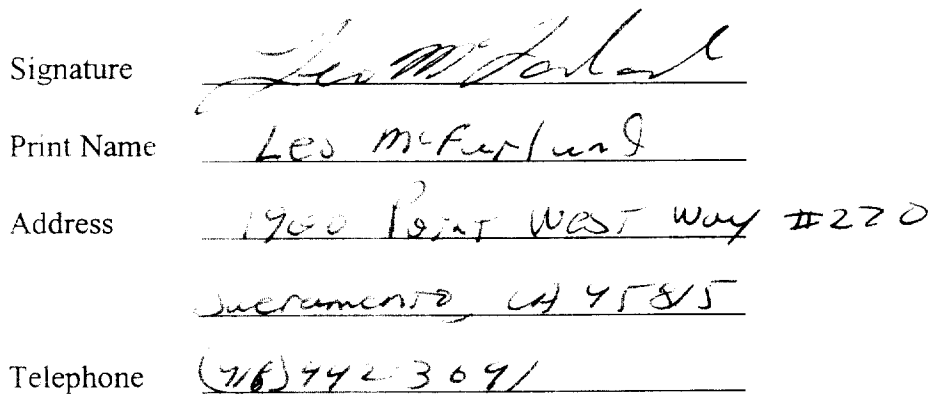 Signature Leo McFarland
Print Name Leo McFarland
Address 1900 Point West Way #220
Sacramento, CA 95815
Telephone (916)